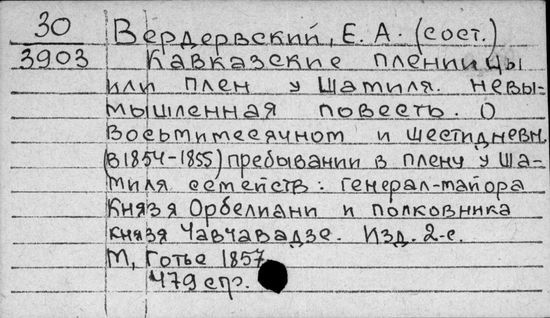 30 Вердервский, Е. А. (сост.)
3903 Кавказские пленницы
или плен у Шамиля. Невы-
мышленная повесть. О
восьмимесячном и шестидневн.
(в 1854-1855) пребывании в плену у Ша-
миля семейств: генерал-майора
Князя Орбелиани и полковника
князя Чавчавадзе. Изд. 2-е.
М, Готье 1857
479 стр.